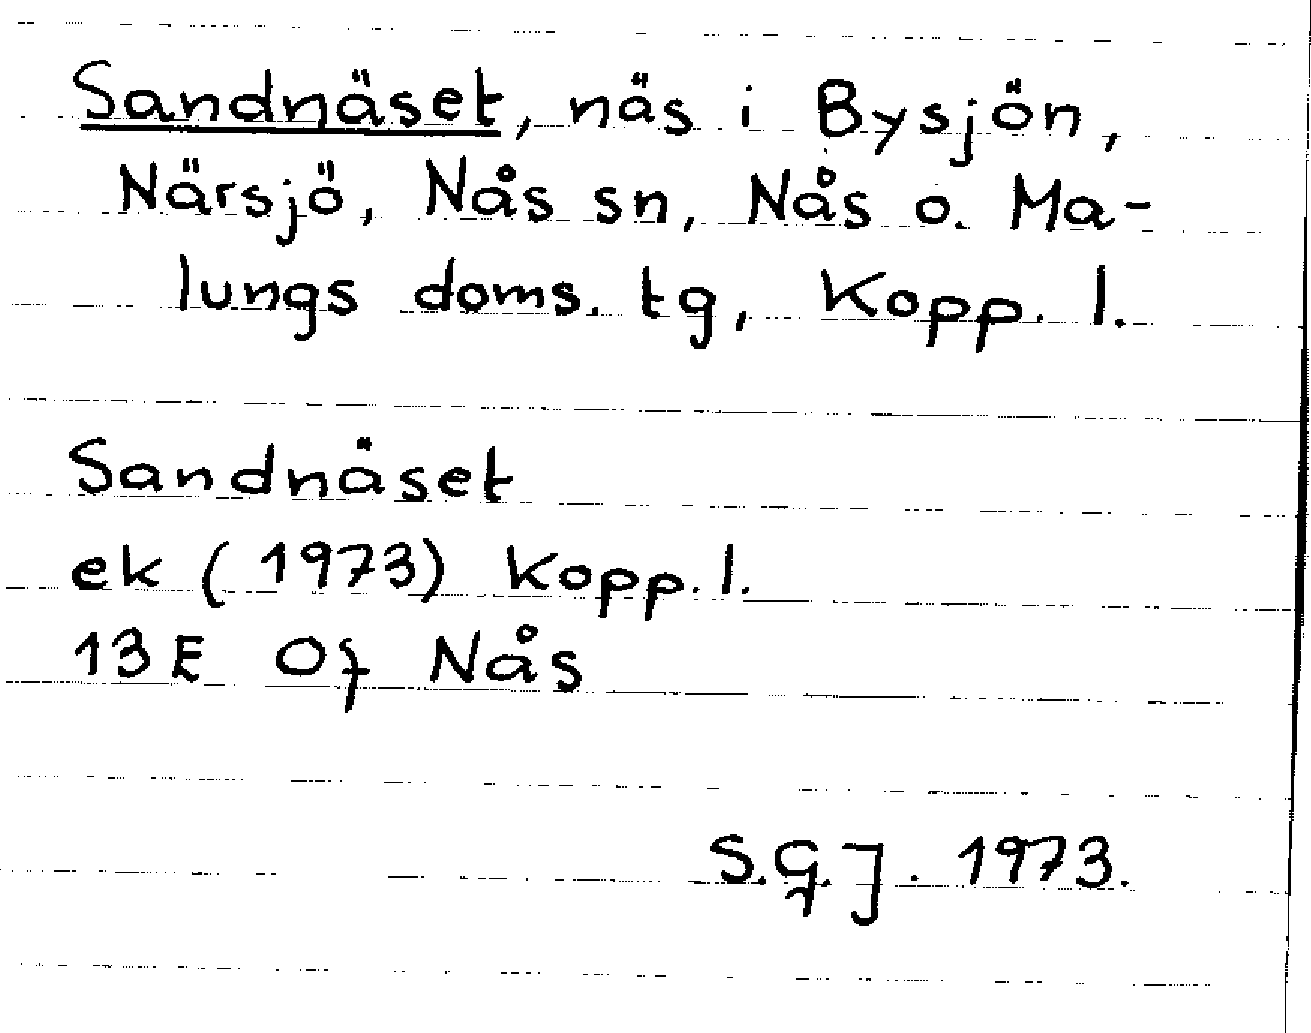 Sandnäset, näs i Bysjön,
Närsjö, Nås sn, Nås o. Ma-
lungs doms. tg, Kopp. l.
Sandnäset
ek (1973) Kopp. l.
13E 0f Nås
S.G.J. 1973.